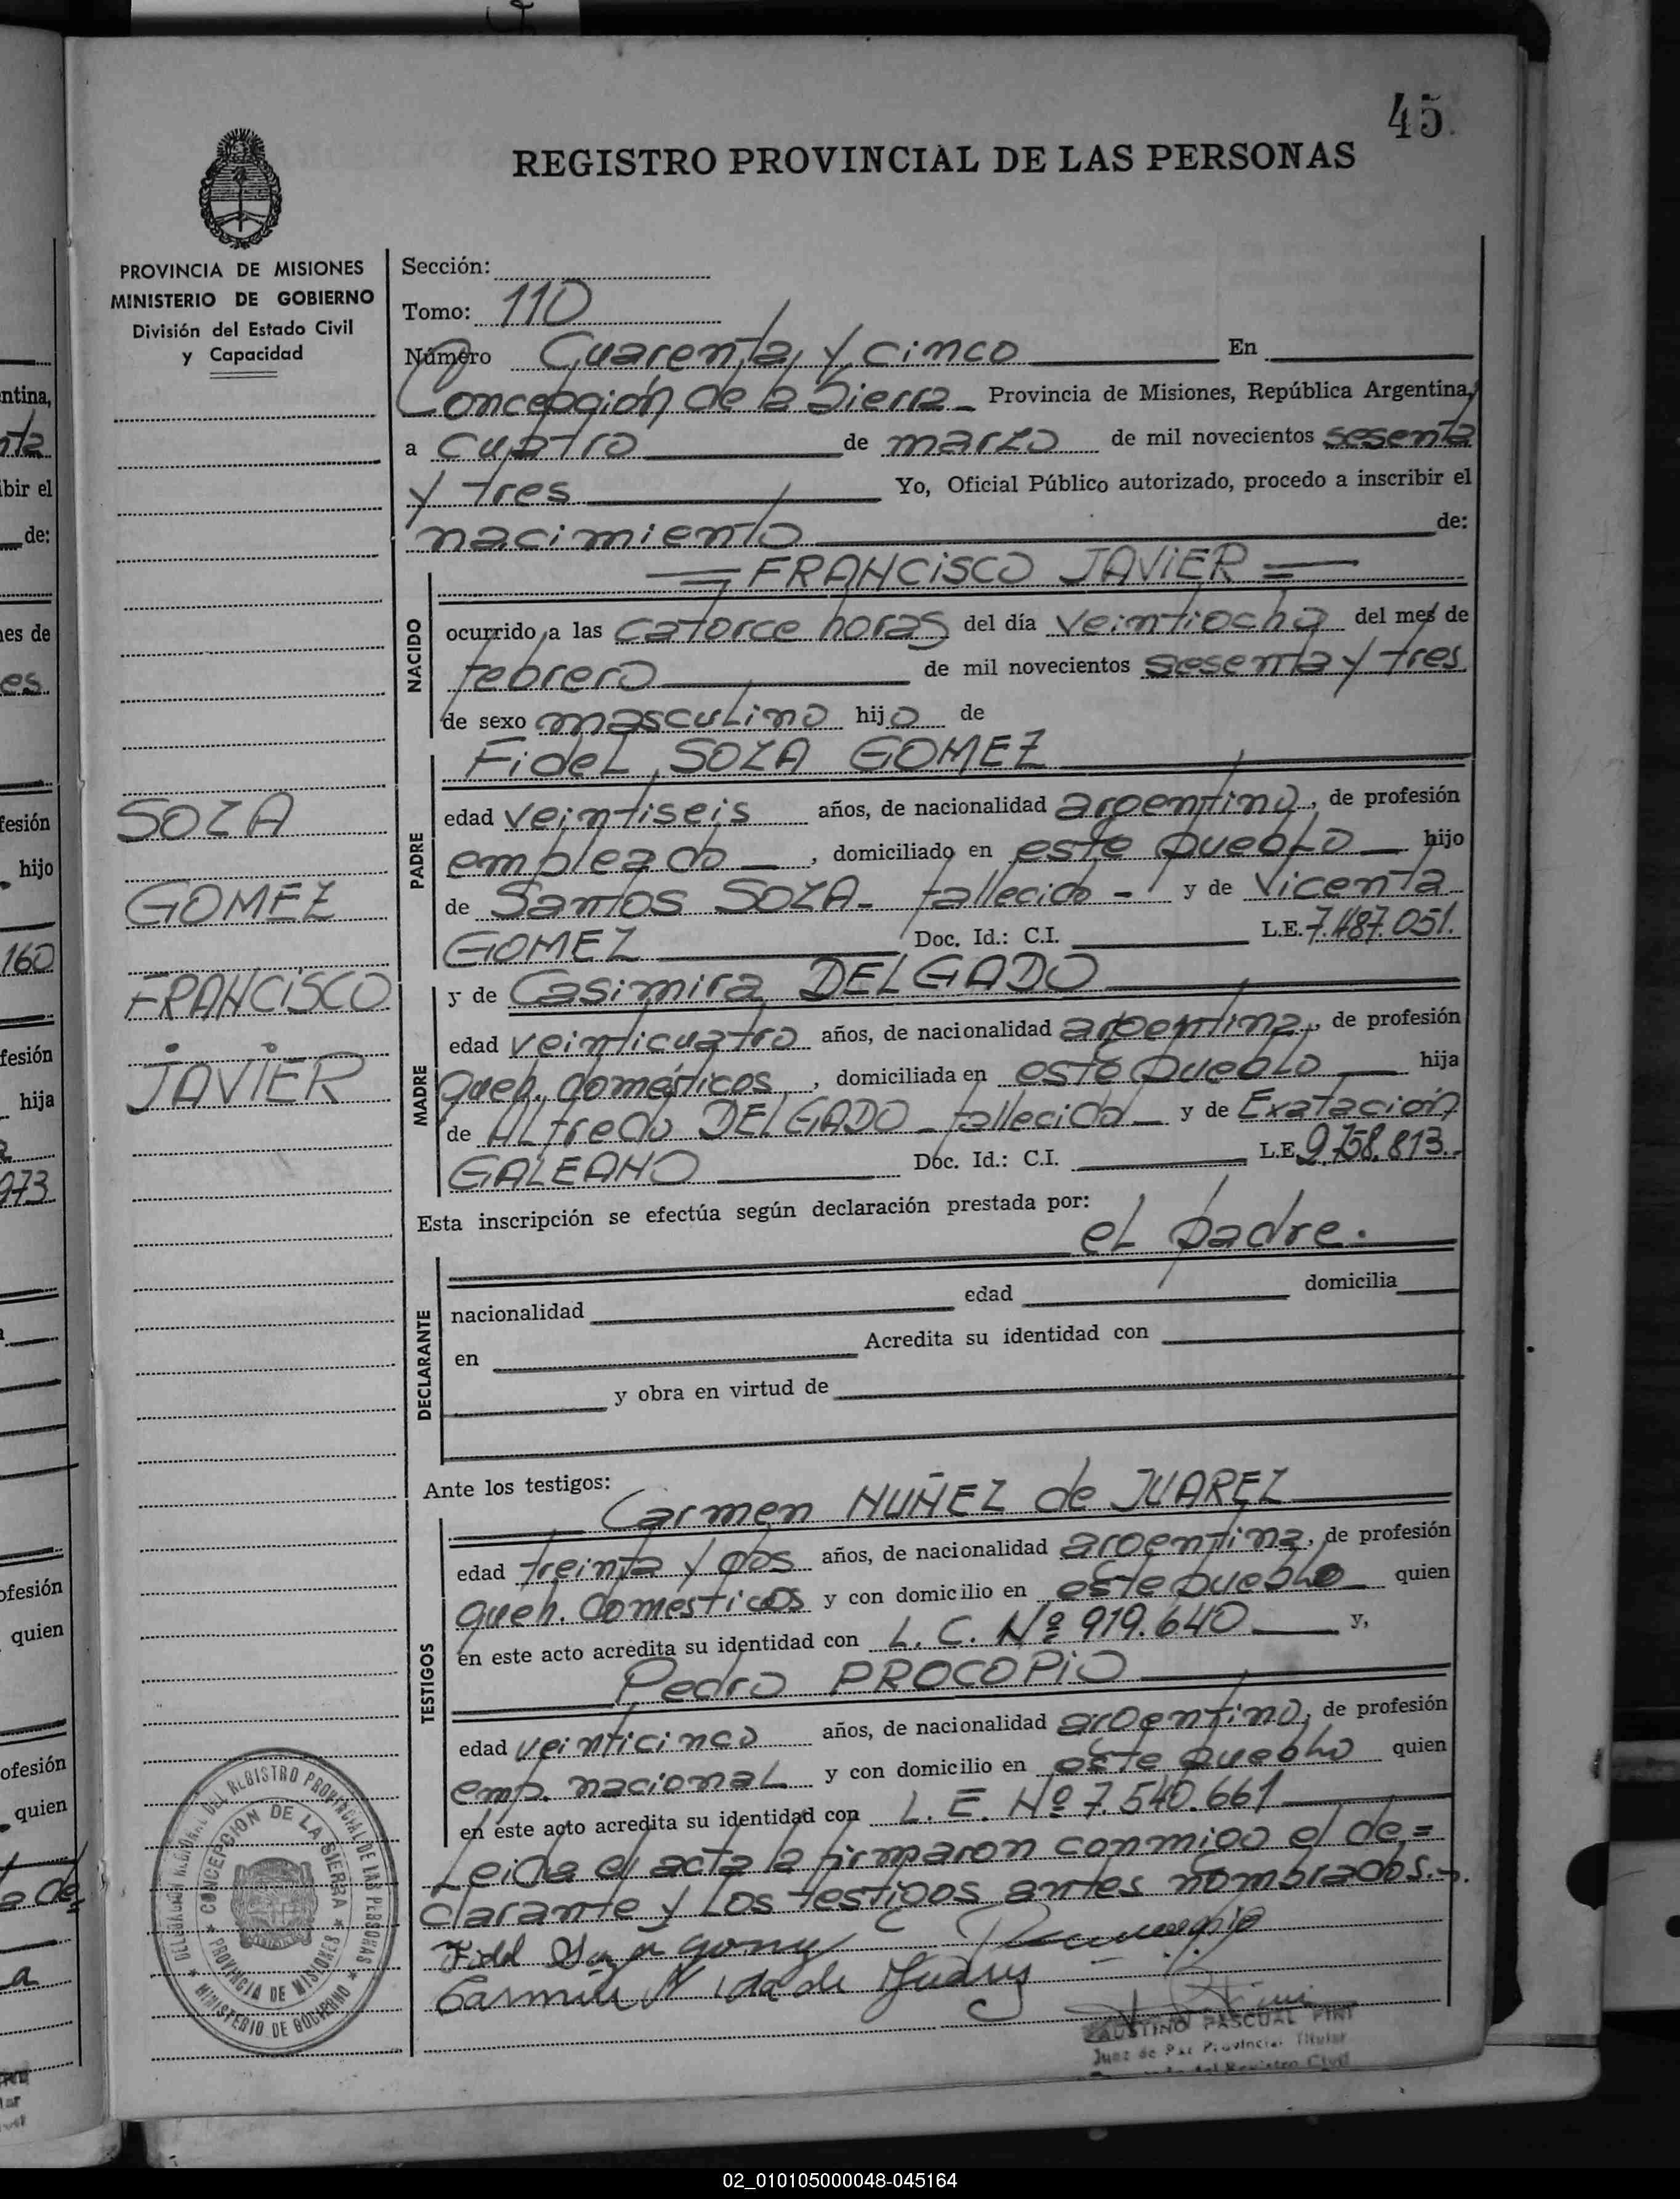 45
REGISTRO PROVINCIAL DE LAS PERSONAS
PROVINCIA DE MISIONES
MINISTERIO DE GOBIERNO
División del Estado Civil
y Capacidad
SOZA
GOMEZ
FRANCISCO
JAVIER
Sección:
Tomo: 110
Número Cuarenta y cinco En
Concepción de la Sierra Provincia de Misiones, República Argentina,
a cuatro de marzo de mil novecientos sesenta
y tres Yo, Oficial Público autorizado, procedo a inscribir el
nacimiento de:
= FRANCISCO JAVIER =
NACIDO
ocurrido a las catorce horas del día veintiocho del mes de
febrero de mil novecientos sesenta y tres
de sexo masculino hijo de
PADRE
Fidel SOZA GOMEZ
edad veintiseis años, de nacionalidad argentino, de profesión
empleado, domiciliado en este pueblo hijo
de Santos SOZA - fallecido - y de Vicenta
GOMEZ Doc. Id.: C.I. L.E. 7.487.051.
MADRE
y de Casimira DELGADO
edad veinticuatro años, de nacionalidad argentina, de profesión
queh. domésticos, domiciliada en este pueblo hija
de Alfredo DELGADO - fallecido - y de Exatación
GALEANO Doc. Id.: C.I. L.E. 9.758.813.-
Esta inscripción se efectúa según declaración prestada por:
el padre.
DECLARANTE
nacionalidad edad domicilia
en Acredita su identidad con
y obra en virtud de
Ante los testigos:
TESTIGOS
Carmen NUÑEZ de JUAREZ
edad treinta y dos años, de nacionalidad argentina, de profesión
queh. domesticos y con domicilio en este pueblo quien
en este acto acredita su identidad con L. C. Nº 919.640 y,
Pedro PROCOPIO
edad veinticinco años, de nacionalidad argentino, de profesión
emp. nacional y con domicilio en este pueblo quien
en este acto acredita su identidad con L. E. Nº 7.540.661
Leida el acta la firmaron conmigo el de=
clarante y los testigos antes nombrados.-
DELEGACION REGIONAL DEL REGISTRO PROVINCIAL DE LAS PERSONAS
* MINISTERIO DE GOBIERNO *
* CONCEPCION DE LA SIERRA *
PROVINCIA DE MISIONES
FAUSTINO PASCUAL PINI
Juez de Paz Provincial Titular
del Registro Civil
ntina,
nta
ibir el
de:
nes de
es
fesión
hijo
160
fesión
hija
973
ofesión
quien
ofesión
quien
a de
a
02_010105000048-045164